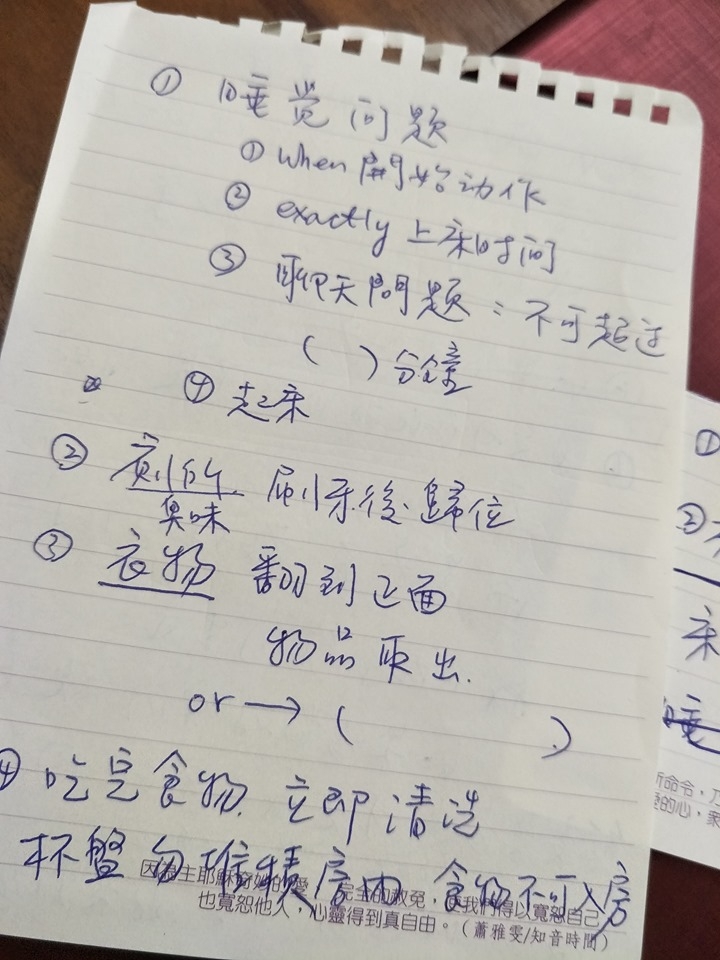 ① 睡覚问题
① when 開始动作
② exactly 上床时间
③ 聊天問題：不可超过
( ) 分鐘
④ 起床
② 厠所 刷牙後歸位
臭味
③ 衣物 翻到正面
物品取出.
or → ( )
④ 吃完食物. 立即清洗
杯盤勿堆積房内 食物不可入房
因著主耶穌奇妙的愛，完全的赦免，使我們得以寬恕自己，
也寬恕他人，心靈得到真自由。（蕭雅雯/知音時間）
①
②
床
睡
所命令，
的心，家